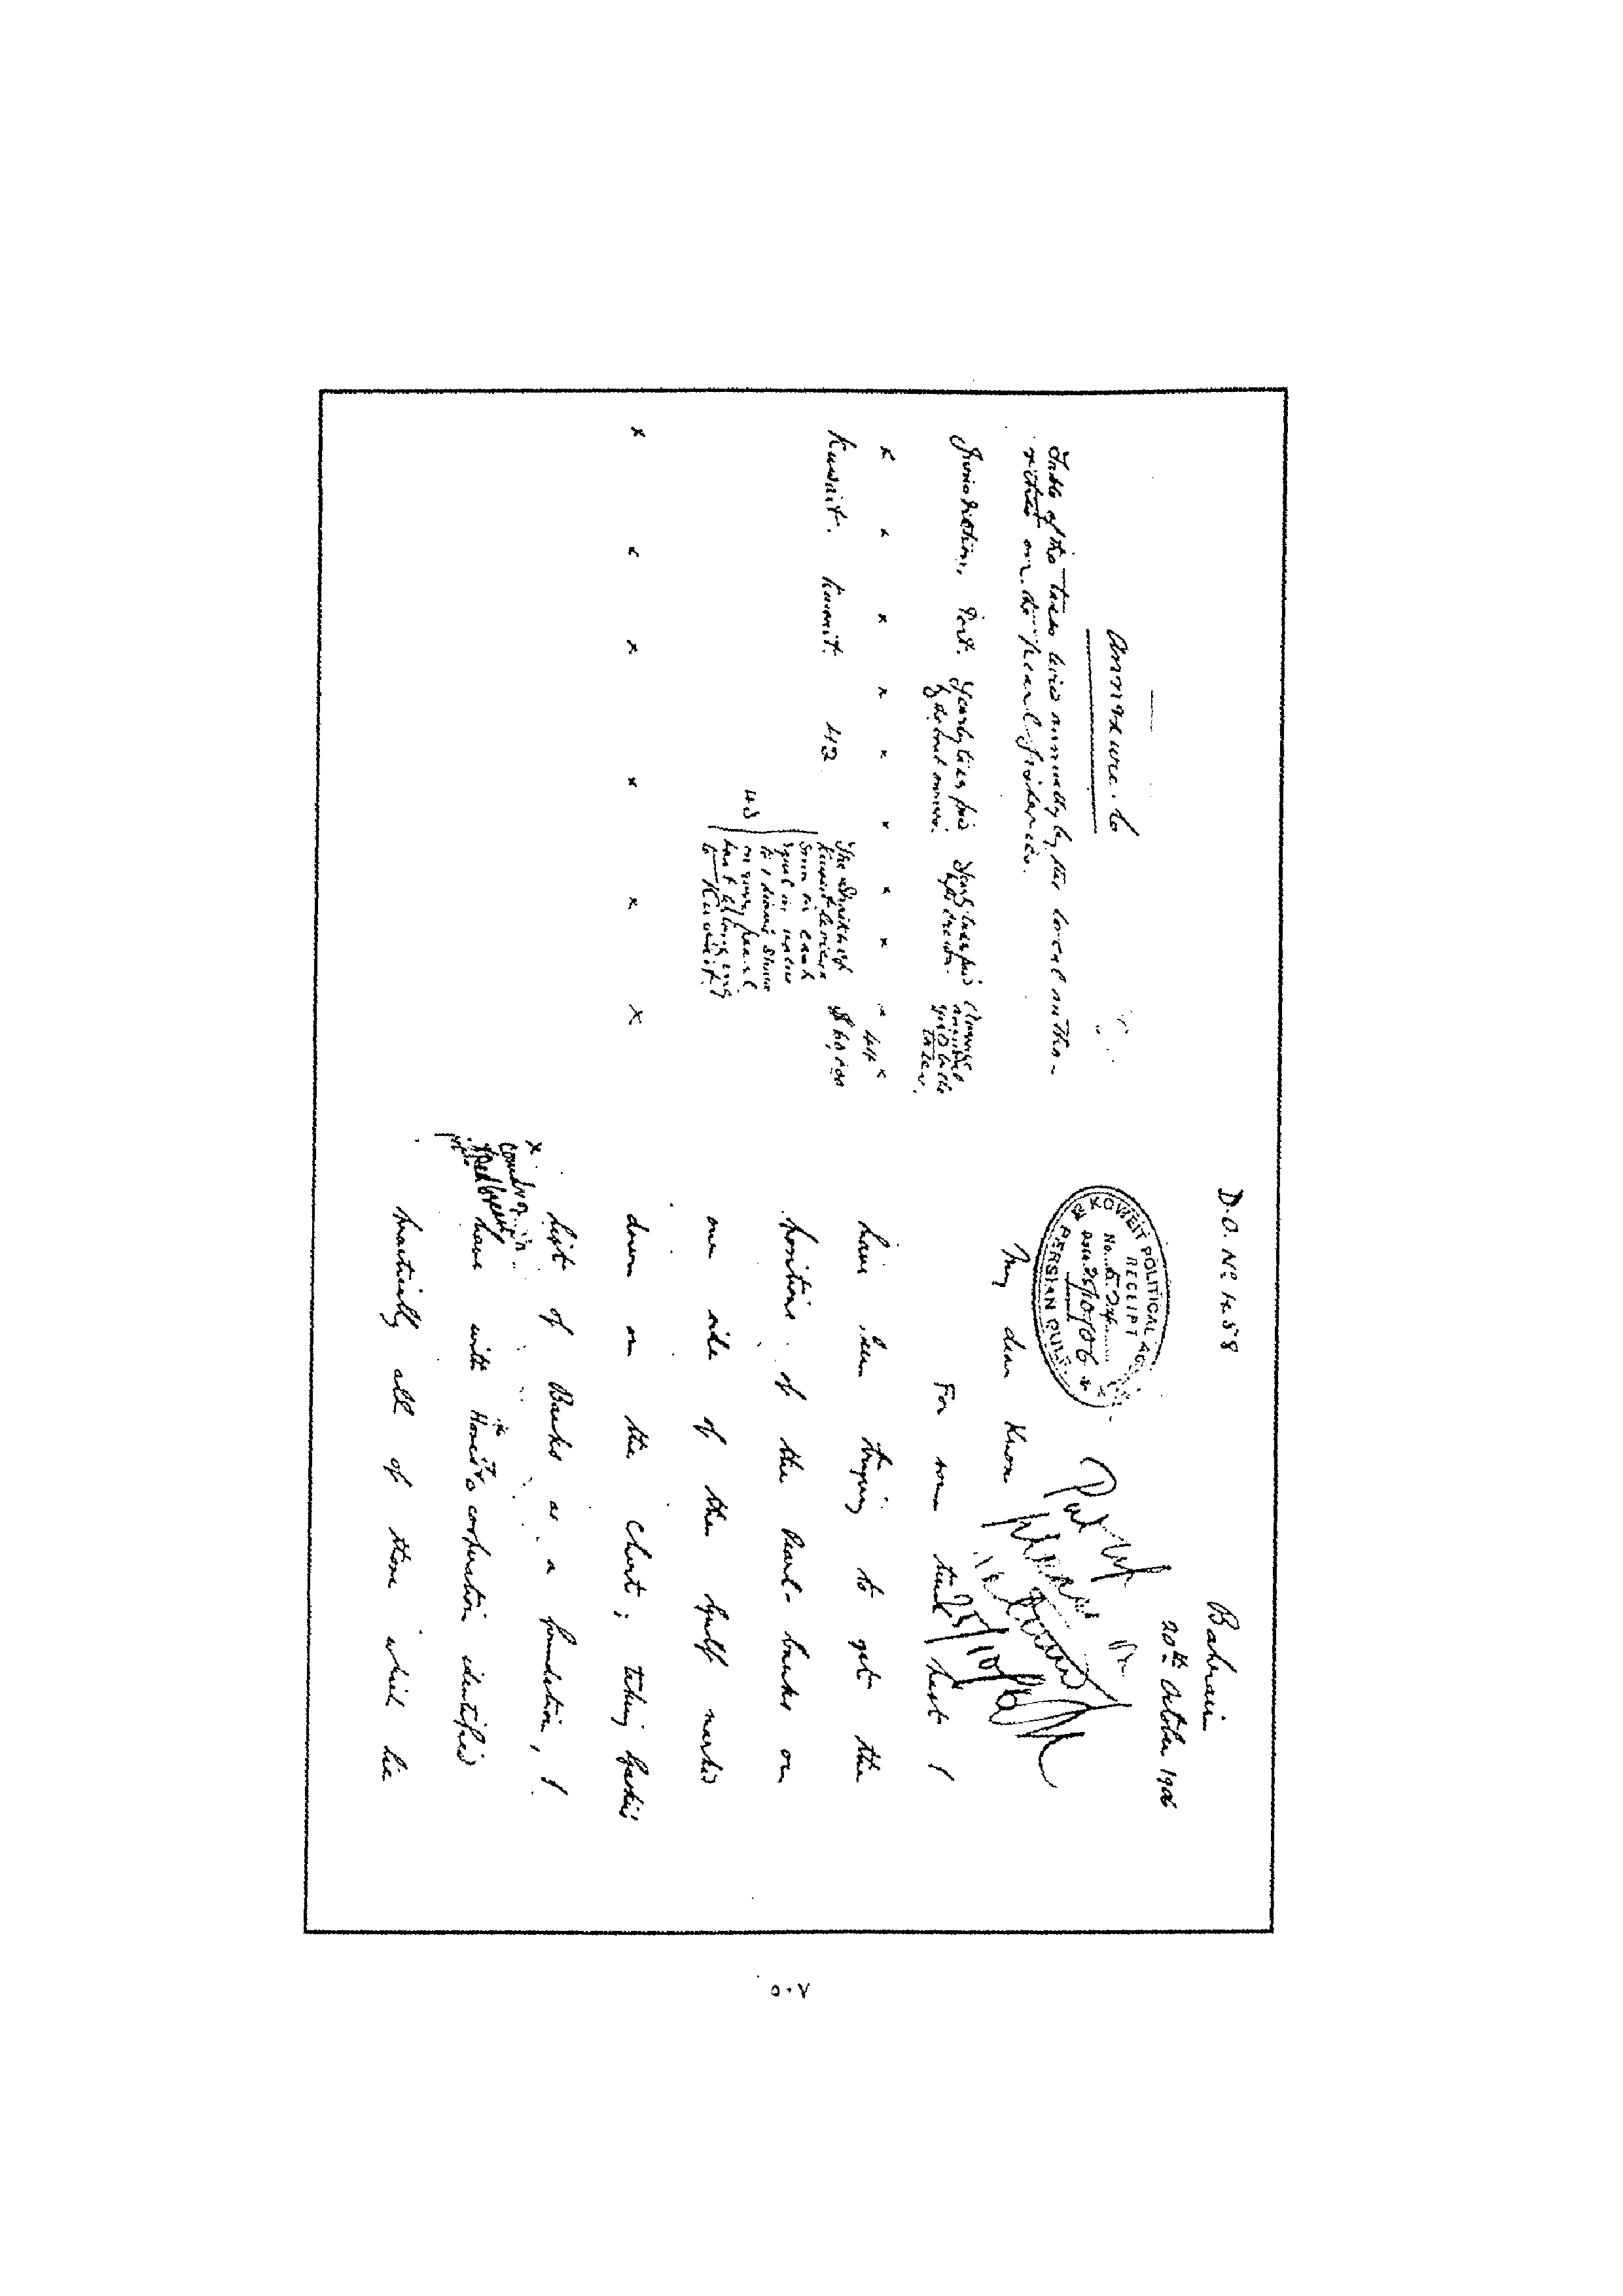 Annexure. 6
Table of the taxes levied annually by the local autho-
rities on the pearl fisheries.
Jurisdiction. Port. Yearly taxes paid Yearly taxes paid
by the boat owners.
x x x x x x x x x 44 x
Kuwait. Kuwait. 42 The Shaikh of $
Kuwait levies a
sum in cash
equal in value
43 to 1 diver's share
on every pearl
boat belonging
to Kuwait.
x x x x x x
D.O. No 458
Bahrain
20th October 1906
KOWEIT POLITICAL
RECEIPT
No. 524
Date 25/10/06
PERSIAN GULF
My dear Knox
25/10/06
For some time past I
have been trying to get the
positions of the Pearl-banks on
one side of the Gulf marked
down on the Chart; taking
list of Banks as a foundation, I
have with the cooperation identified
practically all of those which lie
x
Comdr of
Redbreast
٥٠٧